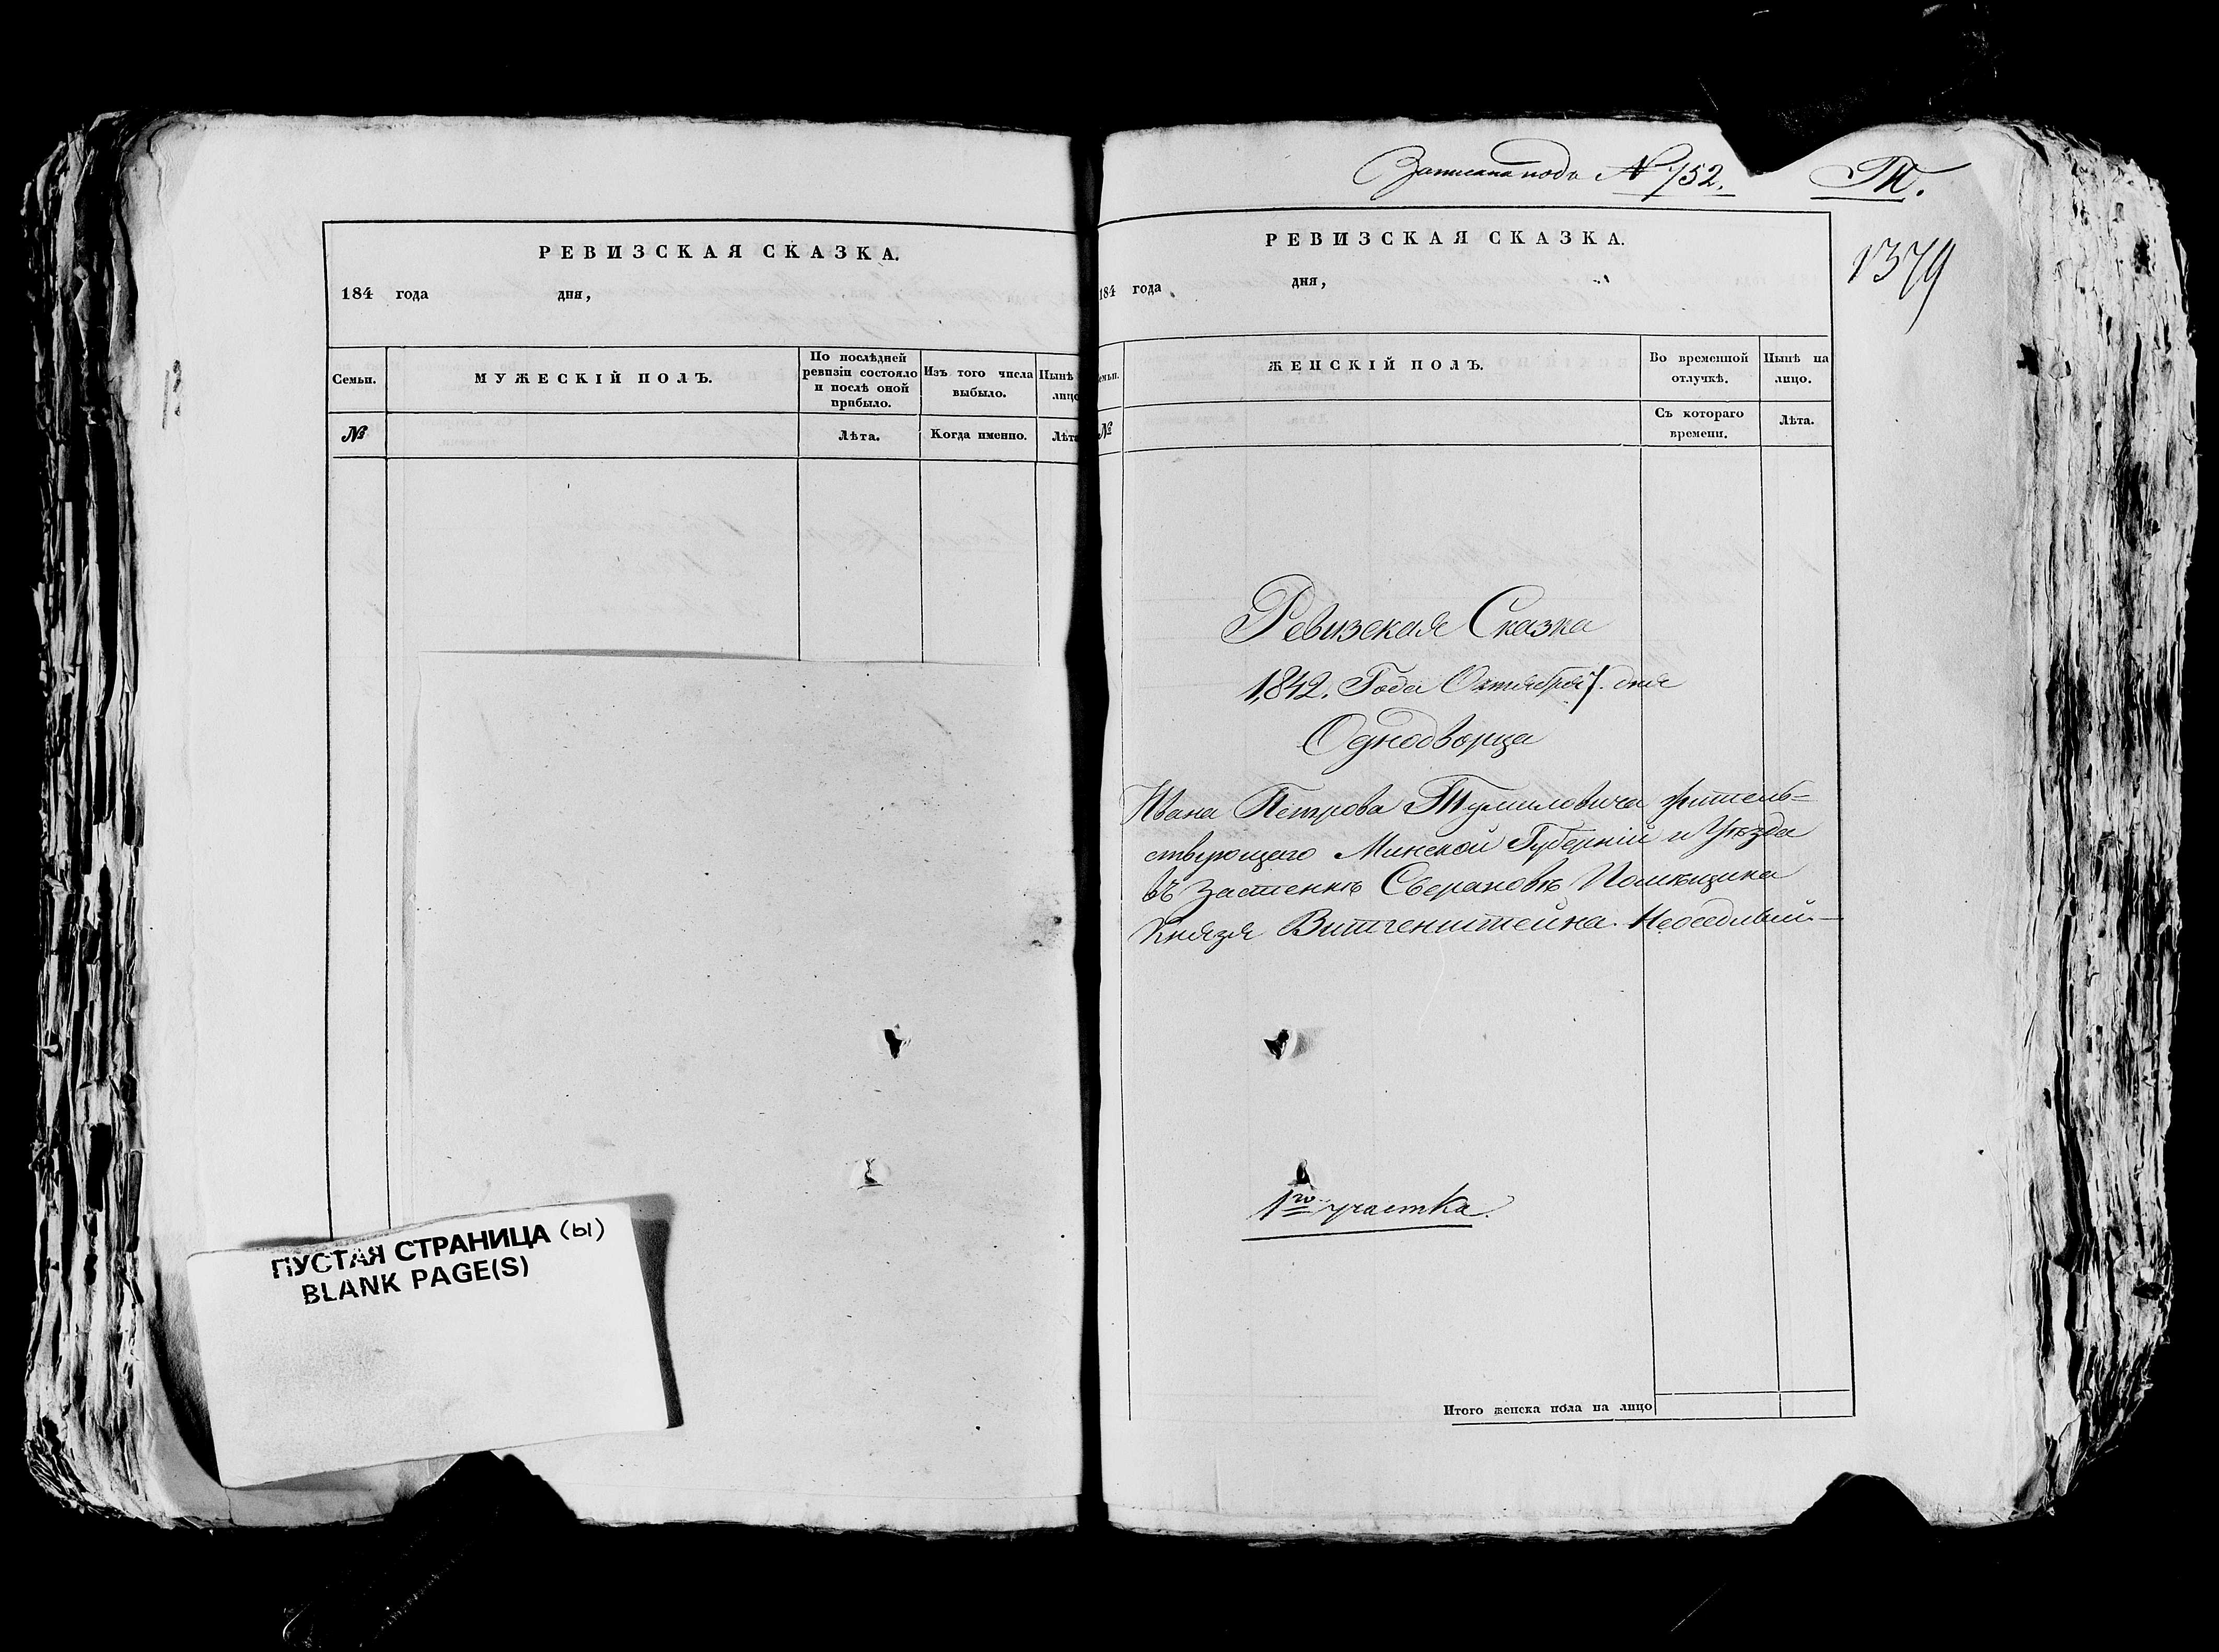 РЕВИЗСКАЯ СКАЗКА.
184 года дня,
Семьи. МУЖЕСКІЙ ПОЛЪ. По послѣдней ревизіи состояло и послѣ оной прибыло. Изъ того числа выбыло. Нынѣ лицо
№ Лѣта. Когда именно. Лѣта
ПУСТАЯ СТРАНИЦА (Ы)
BLANK PAGE(S)
Записана подъ № 752. Т.
1379
РЕВИЗСКАЯ СКАЗКА.
184 года дня,
емьи. ЖЕНСКІЙ ПОЛЪ. Во временной отлучкѣ. Нынѣ на лицо.
№ Съ котораго времени. Лѣта.
Ревизская Сказка
1842. Года Октября 7. дня
Однодворца
Ивана Петрова Тумиловича житель=
ствующаго Минской Губерніи и Уѣзда
въ Застенкѣ Помѣщика
Князя Витгенштейна.
1го участка.
Итого женска пола на лицо